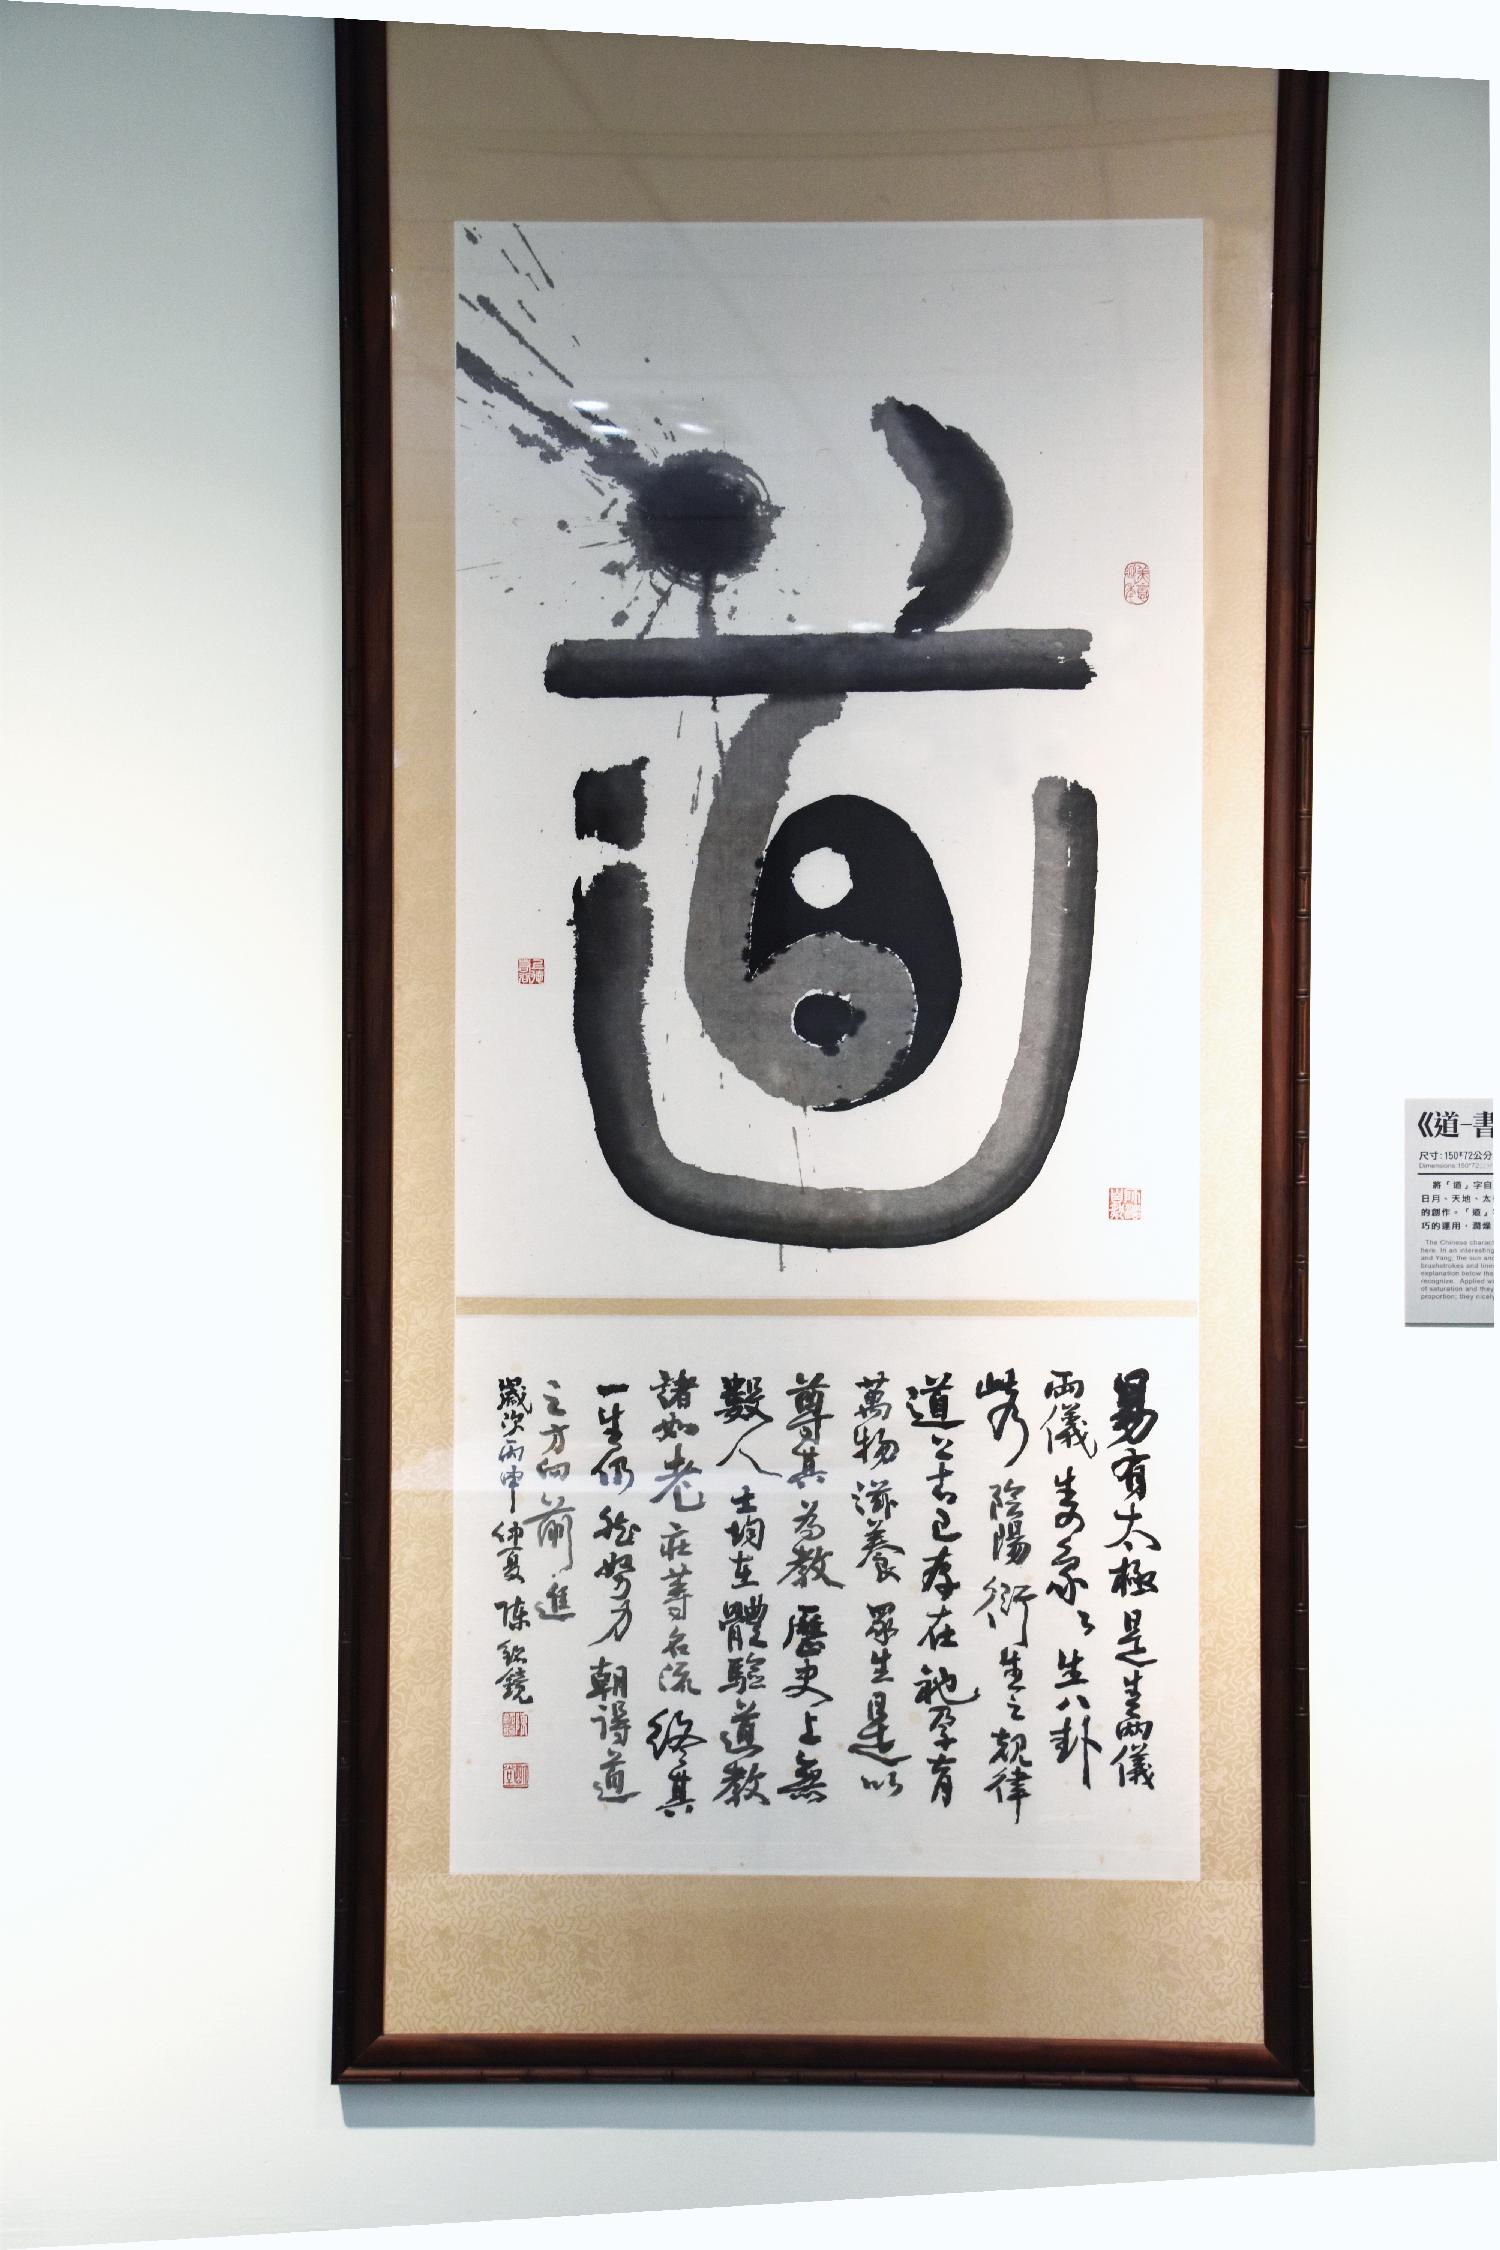 道
易有太極是生兩儀
兩儀生四象々生八卦
此乃陰陽衍生之規律
道亙古已存在祂孕育
萬物滋養眾生是以
尊其為教歷史上無
數人士均在體驗道教
諸如老莊等名流終其
一生仍然努力朝得道
之方向前進
歲次丙申仲夏陳銘鏡
《道-書
尺寸:150*72公分
Dimensions:150*72公分
將「道」字自
日月、天地、太
的創作。「道」
巧的運用,潤燥
The Chinese charact
here. In an interesting
and Yang, the sun and
brushstrokes and line
explanation below the
recognize. Applied wi
of saturation and they
proportion; they nicely